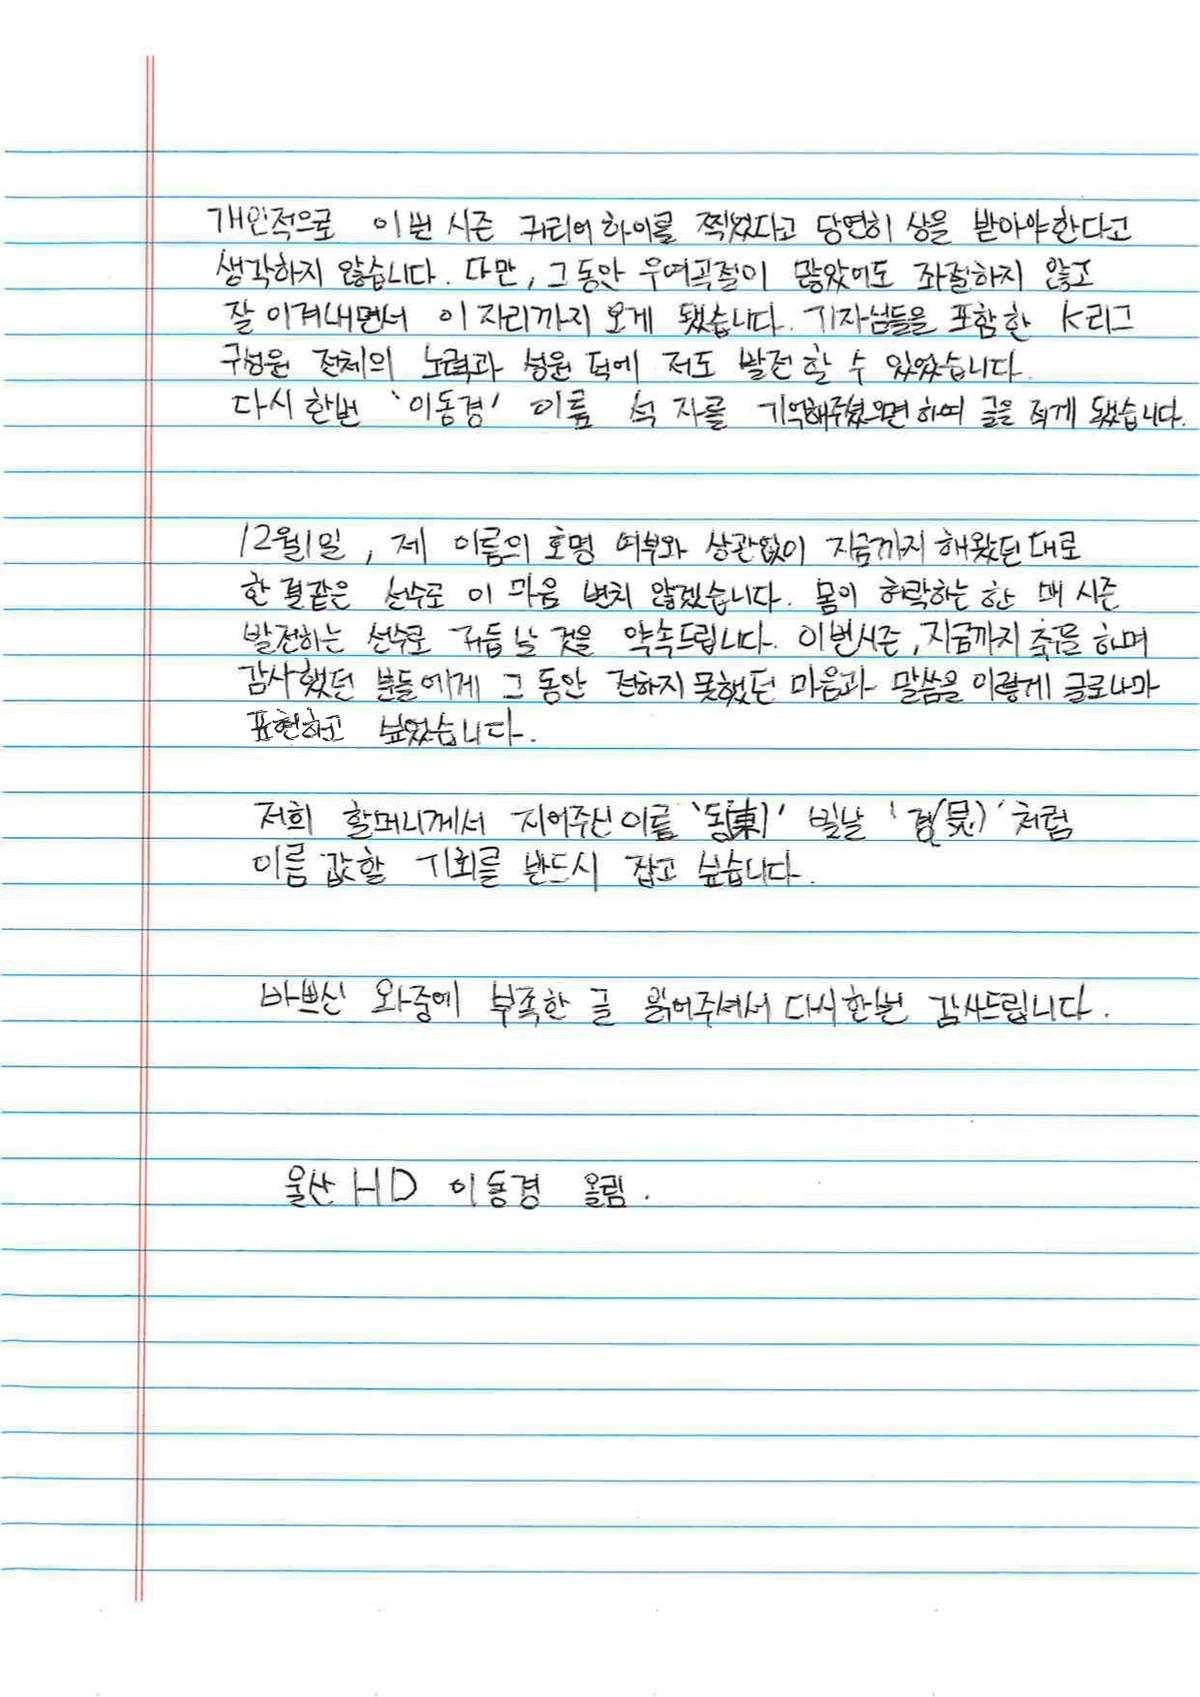 개인적으로 이번 시즌 커리어 하이를 찍었다고 당연히 상을 받아야한다고
생각하지 않습니다. 다만, 그 동안 우여곡절이 많았어도 좌절하지 않고
잘 이겨내면서 이 자리까지 오게 됐습니다. 기자님들을 포함한 K리그
구성원 전체의 노력과 성원 덕에 저도 발전 할 수 있었습니다.
다시 한번 '이동경' 이름 석 자를 기억해주셨으면 하여 글을 적게 됐습니다.
12월1일, 제 이름의 호명 여부와 상관없이 지금까지 해왔던 대로
한결같은 선수로 이 마음 변치 않겠습니다. 몸이 허락하는 한 매 시즌
발전하는 선수로 거듭 날 것을 약속드립니다. 이번시즌, 지금까지 축구를 하며
감사했던 분들에게 그 동안 전하지 못했던 마음과 말씀을 이렇게 글로나마
표현하고 싶었습니다.
저희 할머니께서 지어주신 이름 '동(東)' 빛날 '경(炅)' 처럼
이름 값할 기회를 반드시 잡고 싶습니다.
바쁘신 와중에 부족한 글 읽어주셔서 다시한번 감사드립니다.
울산 HD 이동경 올림.